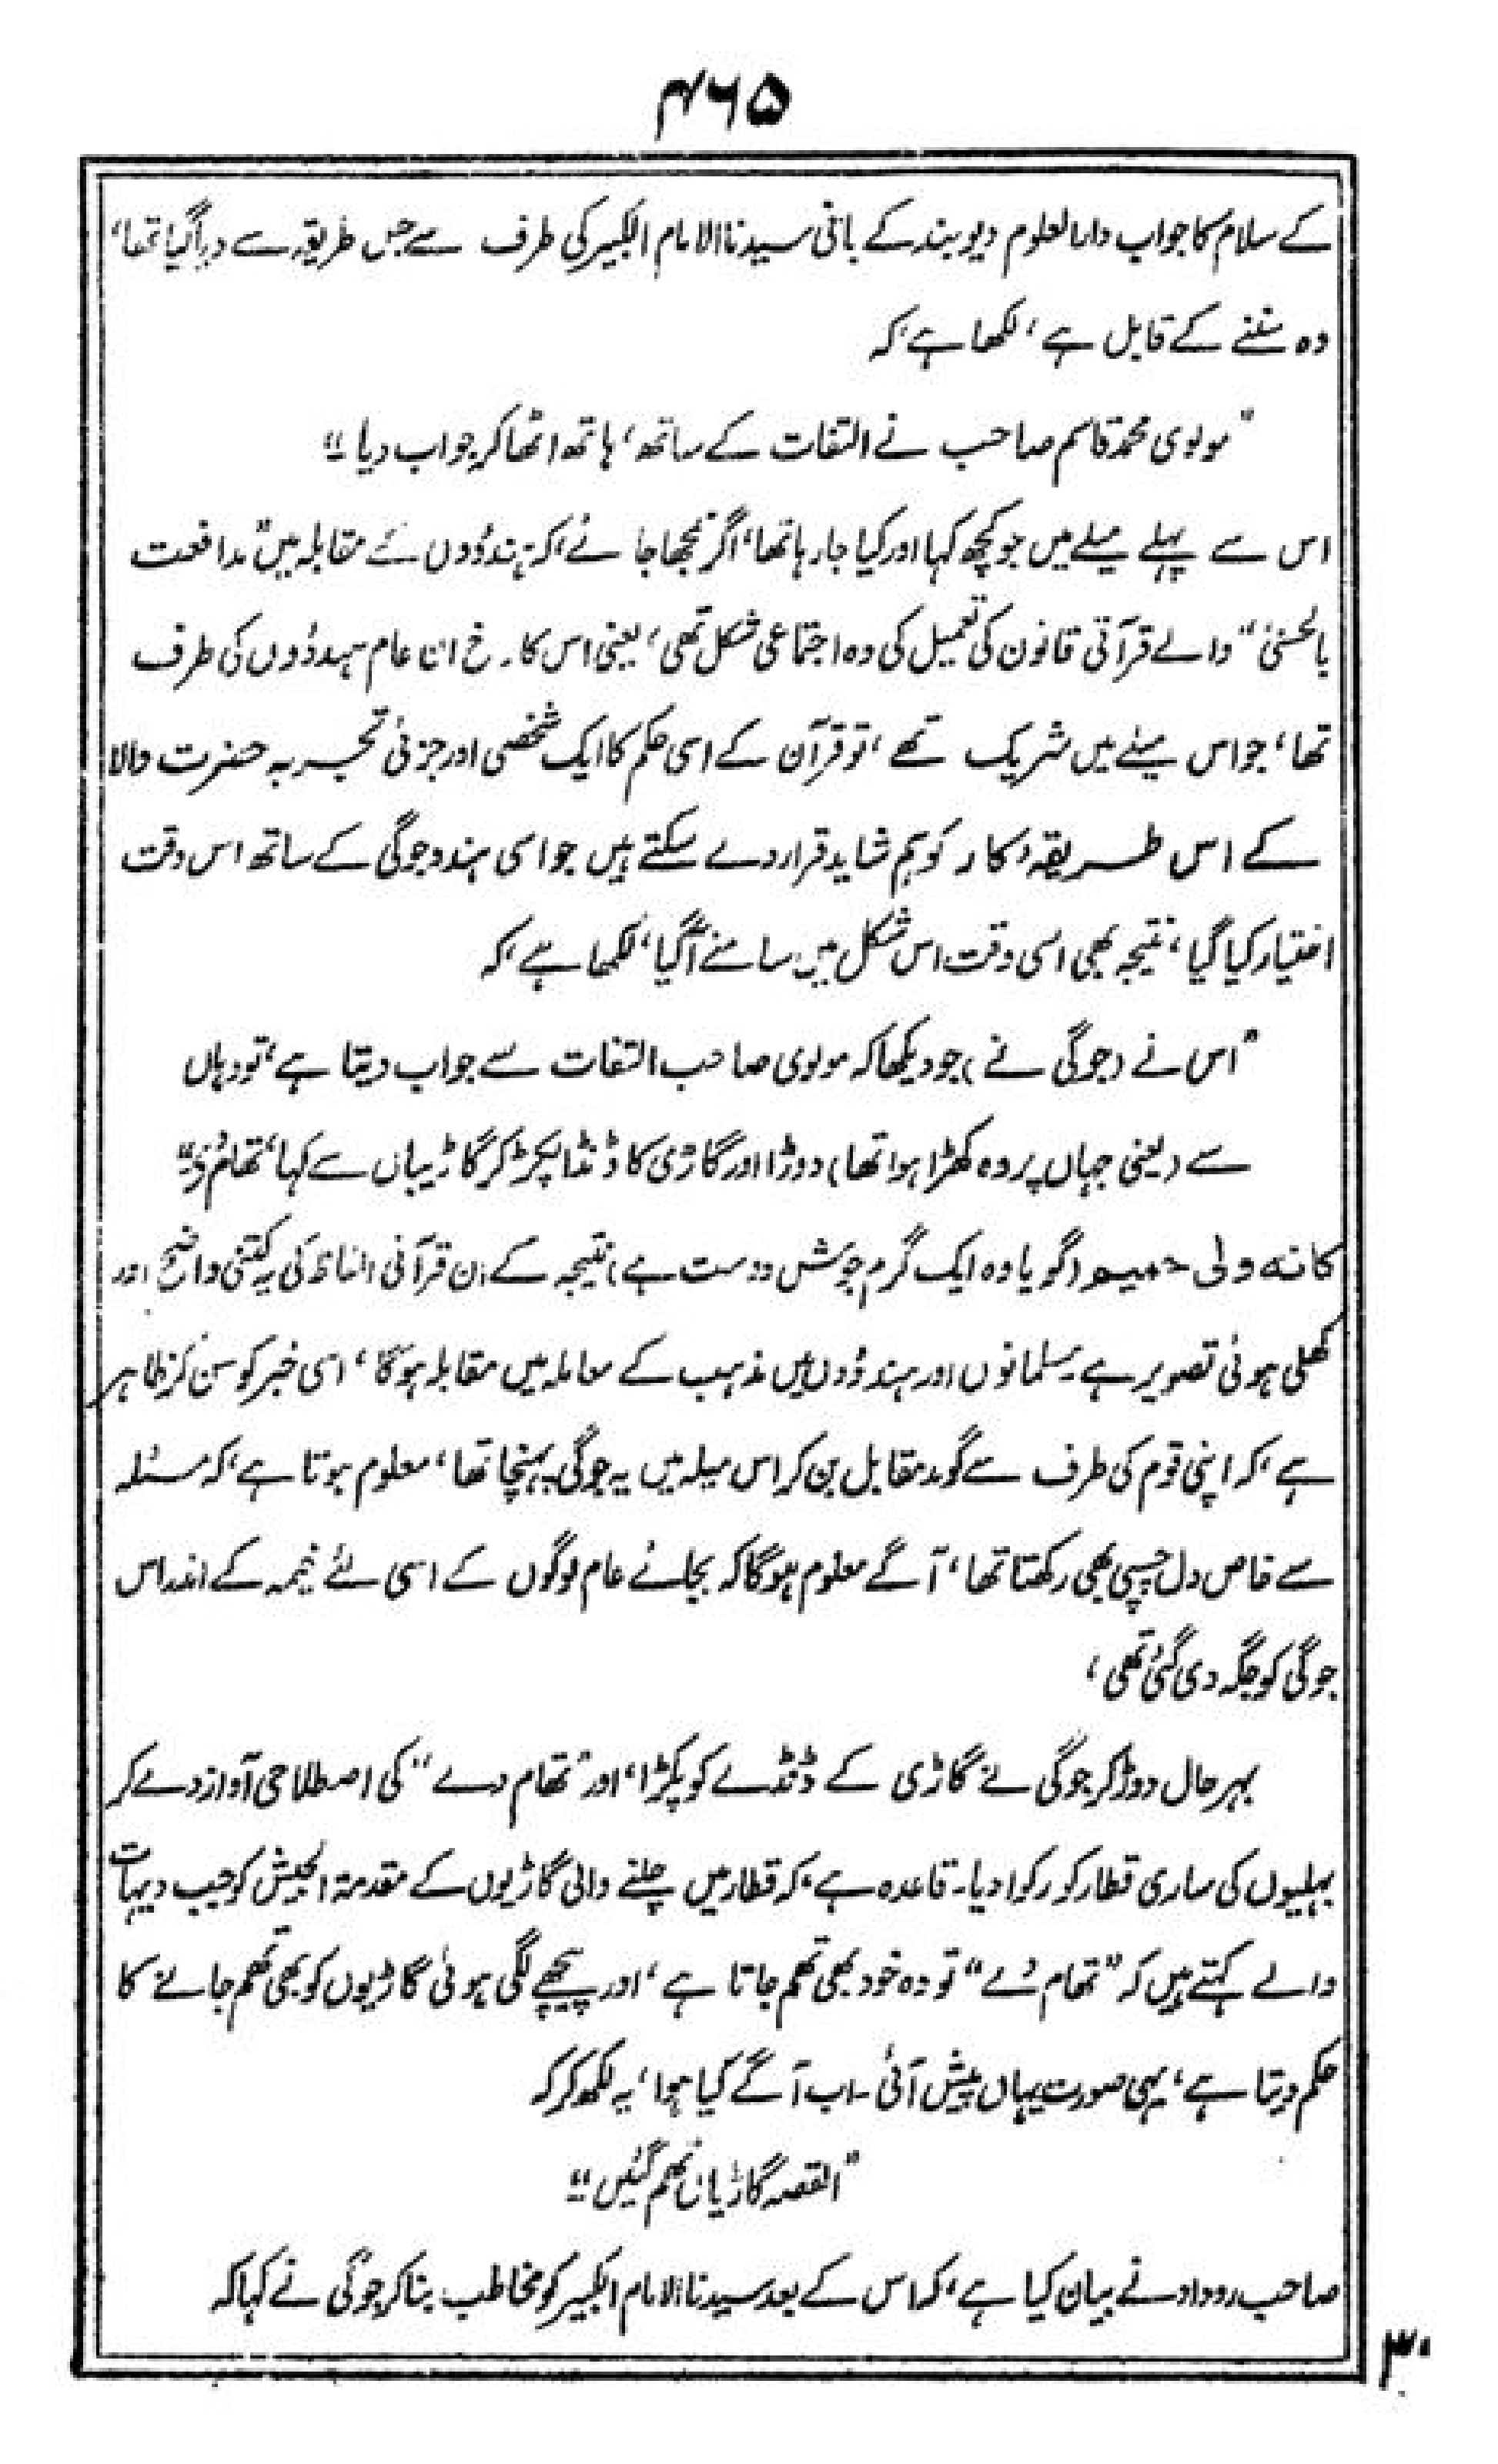 ۴۶۵
کے سلام کا جواب دارالعلوم دیوبند کے بانی سیدنا الامام الکبیر کی طرف سے جس طریقہ سے دیا گیا تھا،
وہ سننے کے قابل ہے، لکھا ہے، کہ
"مولوی محمد قاسم صاحب نے التفات کے ساتھ، ہاتھ اٹھا کر جواب دیا"
اس سے پہلے میلے میں جو کچھ کہا اور کیا جا رہا تھا، اگر سمجھا جائے، کہ ہندوؤں کے مقابلہ میں "مدافعت
بالحسنیٰ" والے قرآنی قانون کی تعمیل کی وہ اجتماعی شکل تھی، یعنی اس کا رخ ان عام ہندوؤں کی طرف
تھا، جو اس میلے میں شریک تھے، تو قرآن کے اسی حکم کا ایک شخصی اور جزئی تجربہ حضرت والا
کے اس طریقۂ کار کو ہم شاید قرار دے سکتے ہیں جو اسی ہندو جوگی کے ساتھ اس وقت
اختیار کیا گیا، نتیجہ بھی اسی وقت اس شکل میں سامنے آگیا، لکھا ہے، کہ
"اس نے (جوگی نے) جو دیکھا کہ مولوی صاحب التفات سے جواب دیتا ہے، تو وہاں
سے (یعنی جہاں پر وہ کھڑا ہوا تھا) دوڑا اور گاڑی کا ڈنڈا پکڑ کر گاڑیبان سے کہا، تھام دے"
کانہ ولی حمیم (گویا وہ ایک گرم جوش دوست ہے) نتیجہ کے ان قرآنی الفاظ کی یہ کتنی واضح اور
کھلی ہوئی تصویر ہے۔ مسلمانوں اور ہندوؤں میں مذہب کے معاملہ میں مقابلہ ہوگا، اسی خبر کو سن کر ظاہر
ہے، کہ اپنی قوم کی طرف سے گو مد مقابل بن کر اس میلہ میں یہ جوگی پہنچا تھا، معلوم ہوتا ہے، کہ مسئلہ
سے خاص دل چسپی بھی رکھتا تھا، آگے معلوم ہوگا کہ بجائے عام لوگوں کے اسی لئے خیمہ کے اندر اس
جوگی کو جگہ دی گئی تھی،
بہرحال دوڑ کر جوگی نے گاڑی کے ڈنڈے کو پکڑا، اور "تھام دے" کی اصطلاحی آواز دے کر
بہلیوں کی ساری قطار کو رکوا دیا۔ قاعدہ ہے، کہ قطار میں چلنے والی گاڑیوں کے مقدمۃ الجیش کو جب دیہات
والے کہتے ہیں کہ "تھام دے" تو وہ خود بھی تھم جاتا ہے، اور پیچھے لگی ہوئی گاڑیوں کو بھی تھم جانے کا
حکم دیتا ہے، یہی صورت یہاں پیش آئی۔ اب آگے کیا ہوا، یہ لکھ کر کہ
"القصہ گاڑیاں تھم گئیں"
صاحب روداد نے بیان کیا ہے، کہ اس کے بعد سیدنا الامام الکبیر کو مخاطب بنا کر جوگی نے کہا کہ
۳۰